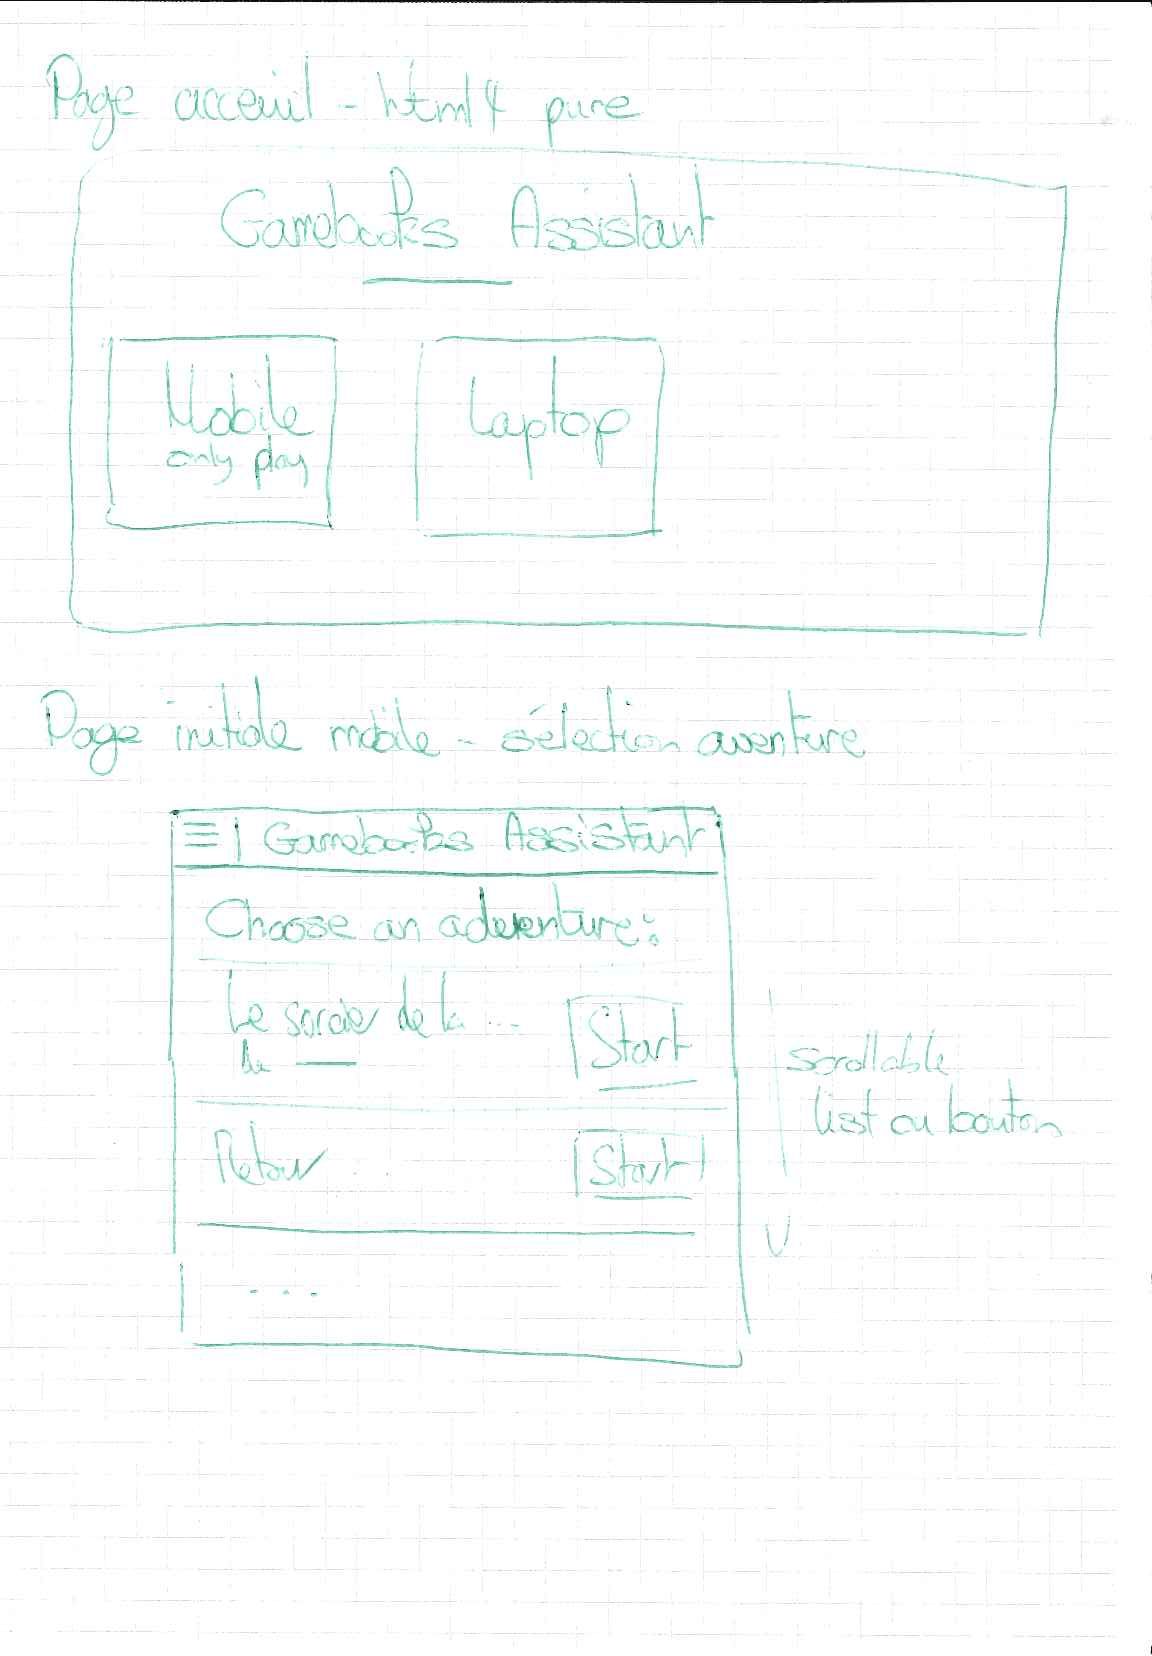 Page acceuil - html4 pure
Gamebooks Assistant
Mobile
only play
Laptop
Page initiale mobile - sélection aventure
Gamebooks Assistant
Choose an adventure:
Le sorcier de la ...
de
Start
scrollable
list ou bouton
Retour ...
Start
...